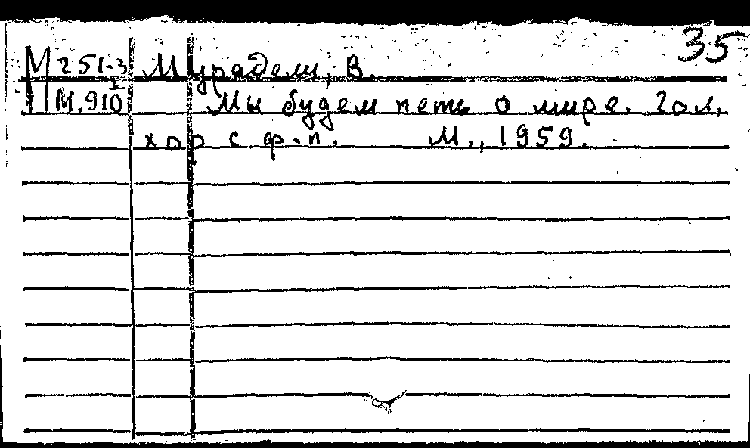 35
М 251-3 Мурадели, В.
М.910 Мы будем петь о мире. 2 гол.
хор с ф.п. М., 1959.